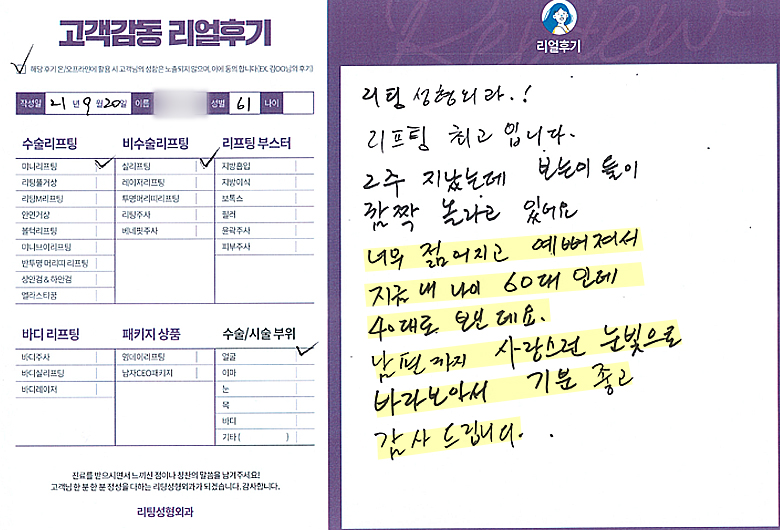 고객감동 리얼후기
해당 후기 온/오프라인에 활용 시 고객님의 성함은 노출되지 않으며, 이에 동의 합니다(EX. 김OO님의 후기)
작성일 21년 9월 20일 이름 성별 61 나이
수술리프팅 비수술리프팅 리프팅 부스터
미니리프팅 실리프팅 지방흡입
리팅풀거상 레이저리프팅 지방이식
리팅M리프팅 투명머리띠리프팅 보톡스
안면거상 리팅주사 필러
볼턱리프팅 베네핏주사 윤곽주사
미니브이리프팅 피부주사
반투명 머리띠 리프팅
상안검 & 하안검
엘라스티꿈
바디 리프팅 패키지 상품 수술/시술 부위
바디주사 원데이리프팅 얼굴
바디실리프팅 남자CEO패키지 이마
바디레이저 눈
목
바디
기타 ( )
진료를 받으시면서 느끼신 점이나 칭찬의 말씀을 남겨주세요!
고객님 한 분 한 분 정성을 다하는 리팅성형외과가 되겠습니다. 감사합니다.
리팅성형외과
Review
리얼후기
리팅 성형외과.!
리프팅 최고 입니다.
2주 지났는데 보는이 들이
깜짝 놀라고 있어요
너무 젊어지고 예뻐져서
지금 내 나이 60대 인데
40대로 보낸데요.
남편까지 사랑스런 눈빛으로
바라보아서 기분 좋고
감사 드립니다. .